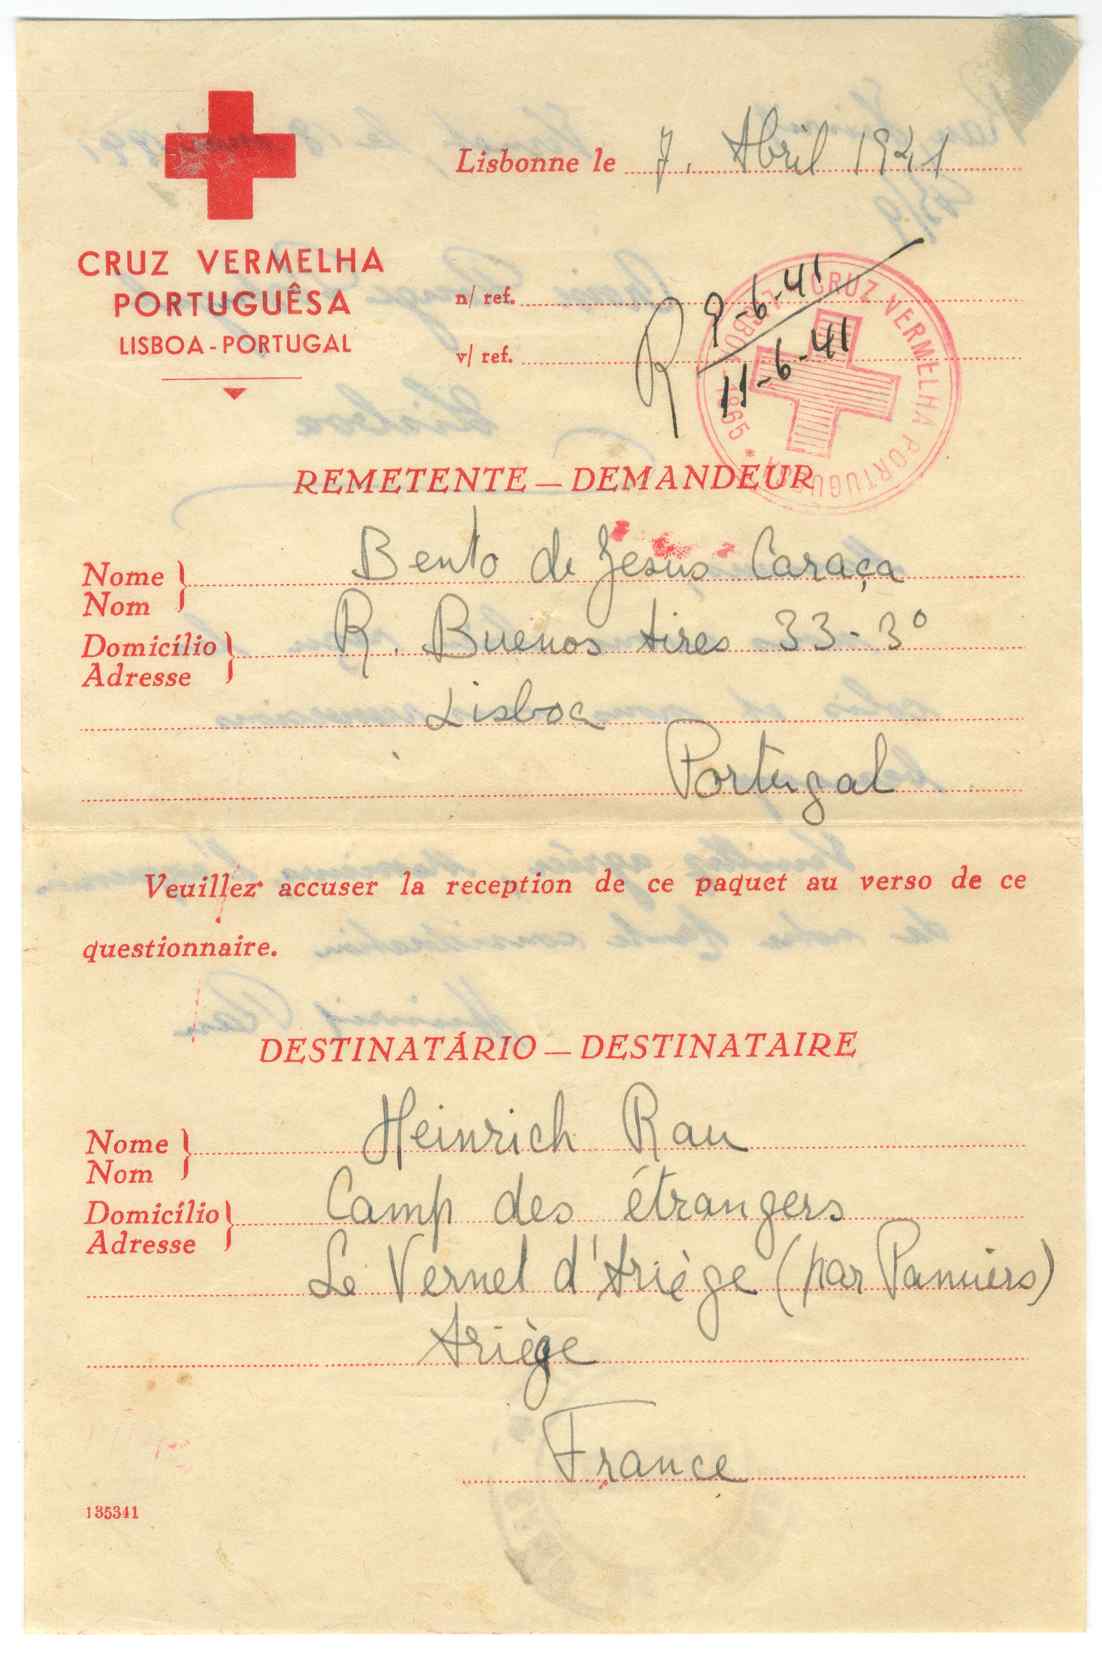 Lisbonne le 7. Abril 1941
CRUZ VERMELHA
PORTUGUÊSA
LISBOA - PORTUGAL
n/ ref.
v/ ref.
R 9-6-41
11-6-41
CRUZ VERMELHA PORTUGUESA
1865 *
REMETENTE — DEMANDEUR
Nome } Bento de Jesus Caraça
Nom
Domicílio } R. Buenos Aires 33-3º
Adresse
Lisboa
Portugal
Veuillez accuser la reception de ce paquet au verso de ce
questionnaire.
DESTINATÁRIO — DESTINATAIRE
Nome } Heinrich Rau
Nom
Domicílio } Camp des étrangers
Adresse
Le Vernet d'Ariège (par Pamiers)
Ariège
France
135341